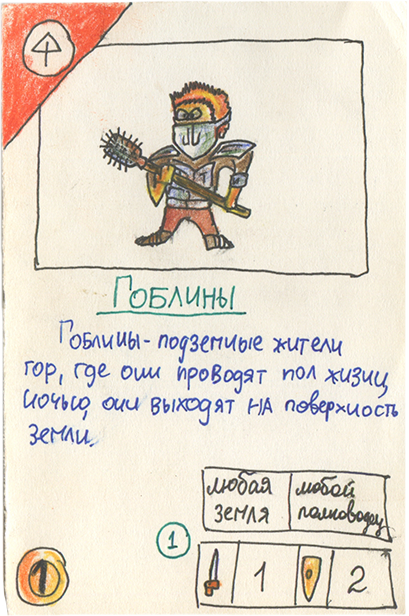 Гоблины
Гоблины - подземные жители
гор, где они проводят пол жизни,
ночью, они выходят на поверхность
земли.
любая земля
любой полководец
1
1 2
1